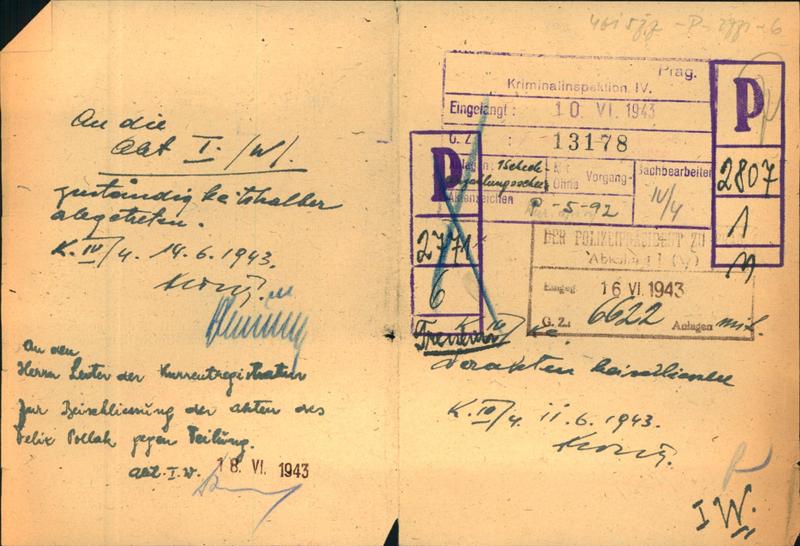 An die
Abt I. /W/.
zuständigkeitshalber
abgetreten.
K. IV/4. 14.6.1943.
An den
Herrn Leiter der Kurrentregistratur
zur Beischliessung der Akten des
Felix Pollak gegen Teilung.
Abt. I.W. 18. VI. 1943
Prag.
Kriminalinspektion IV.
Eingelangt: 10. VI. 1943
G. Z. : 13178
Vorgang-
Ohne
Sachbearbeiter
IV/4
Aktenzeichen
P-5-92
P
2807
1
P
2771
6
DER POLIZEIPRÄSIDENT ZU
Abteilung I (W)
Eingeg. 16 VI. 1943
G. Z.: 6622 Anlagen
Vorakten beischliessen
K. IV/4. 11.6.1943.
I W.